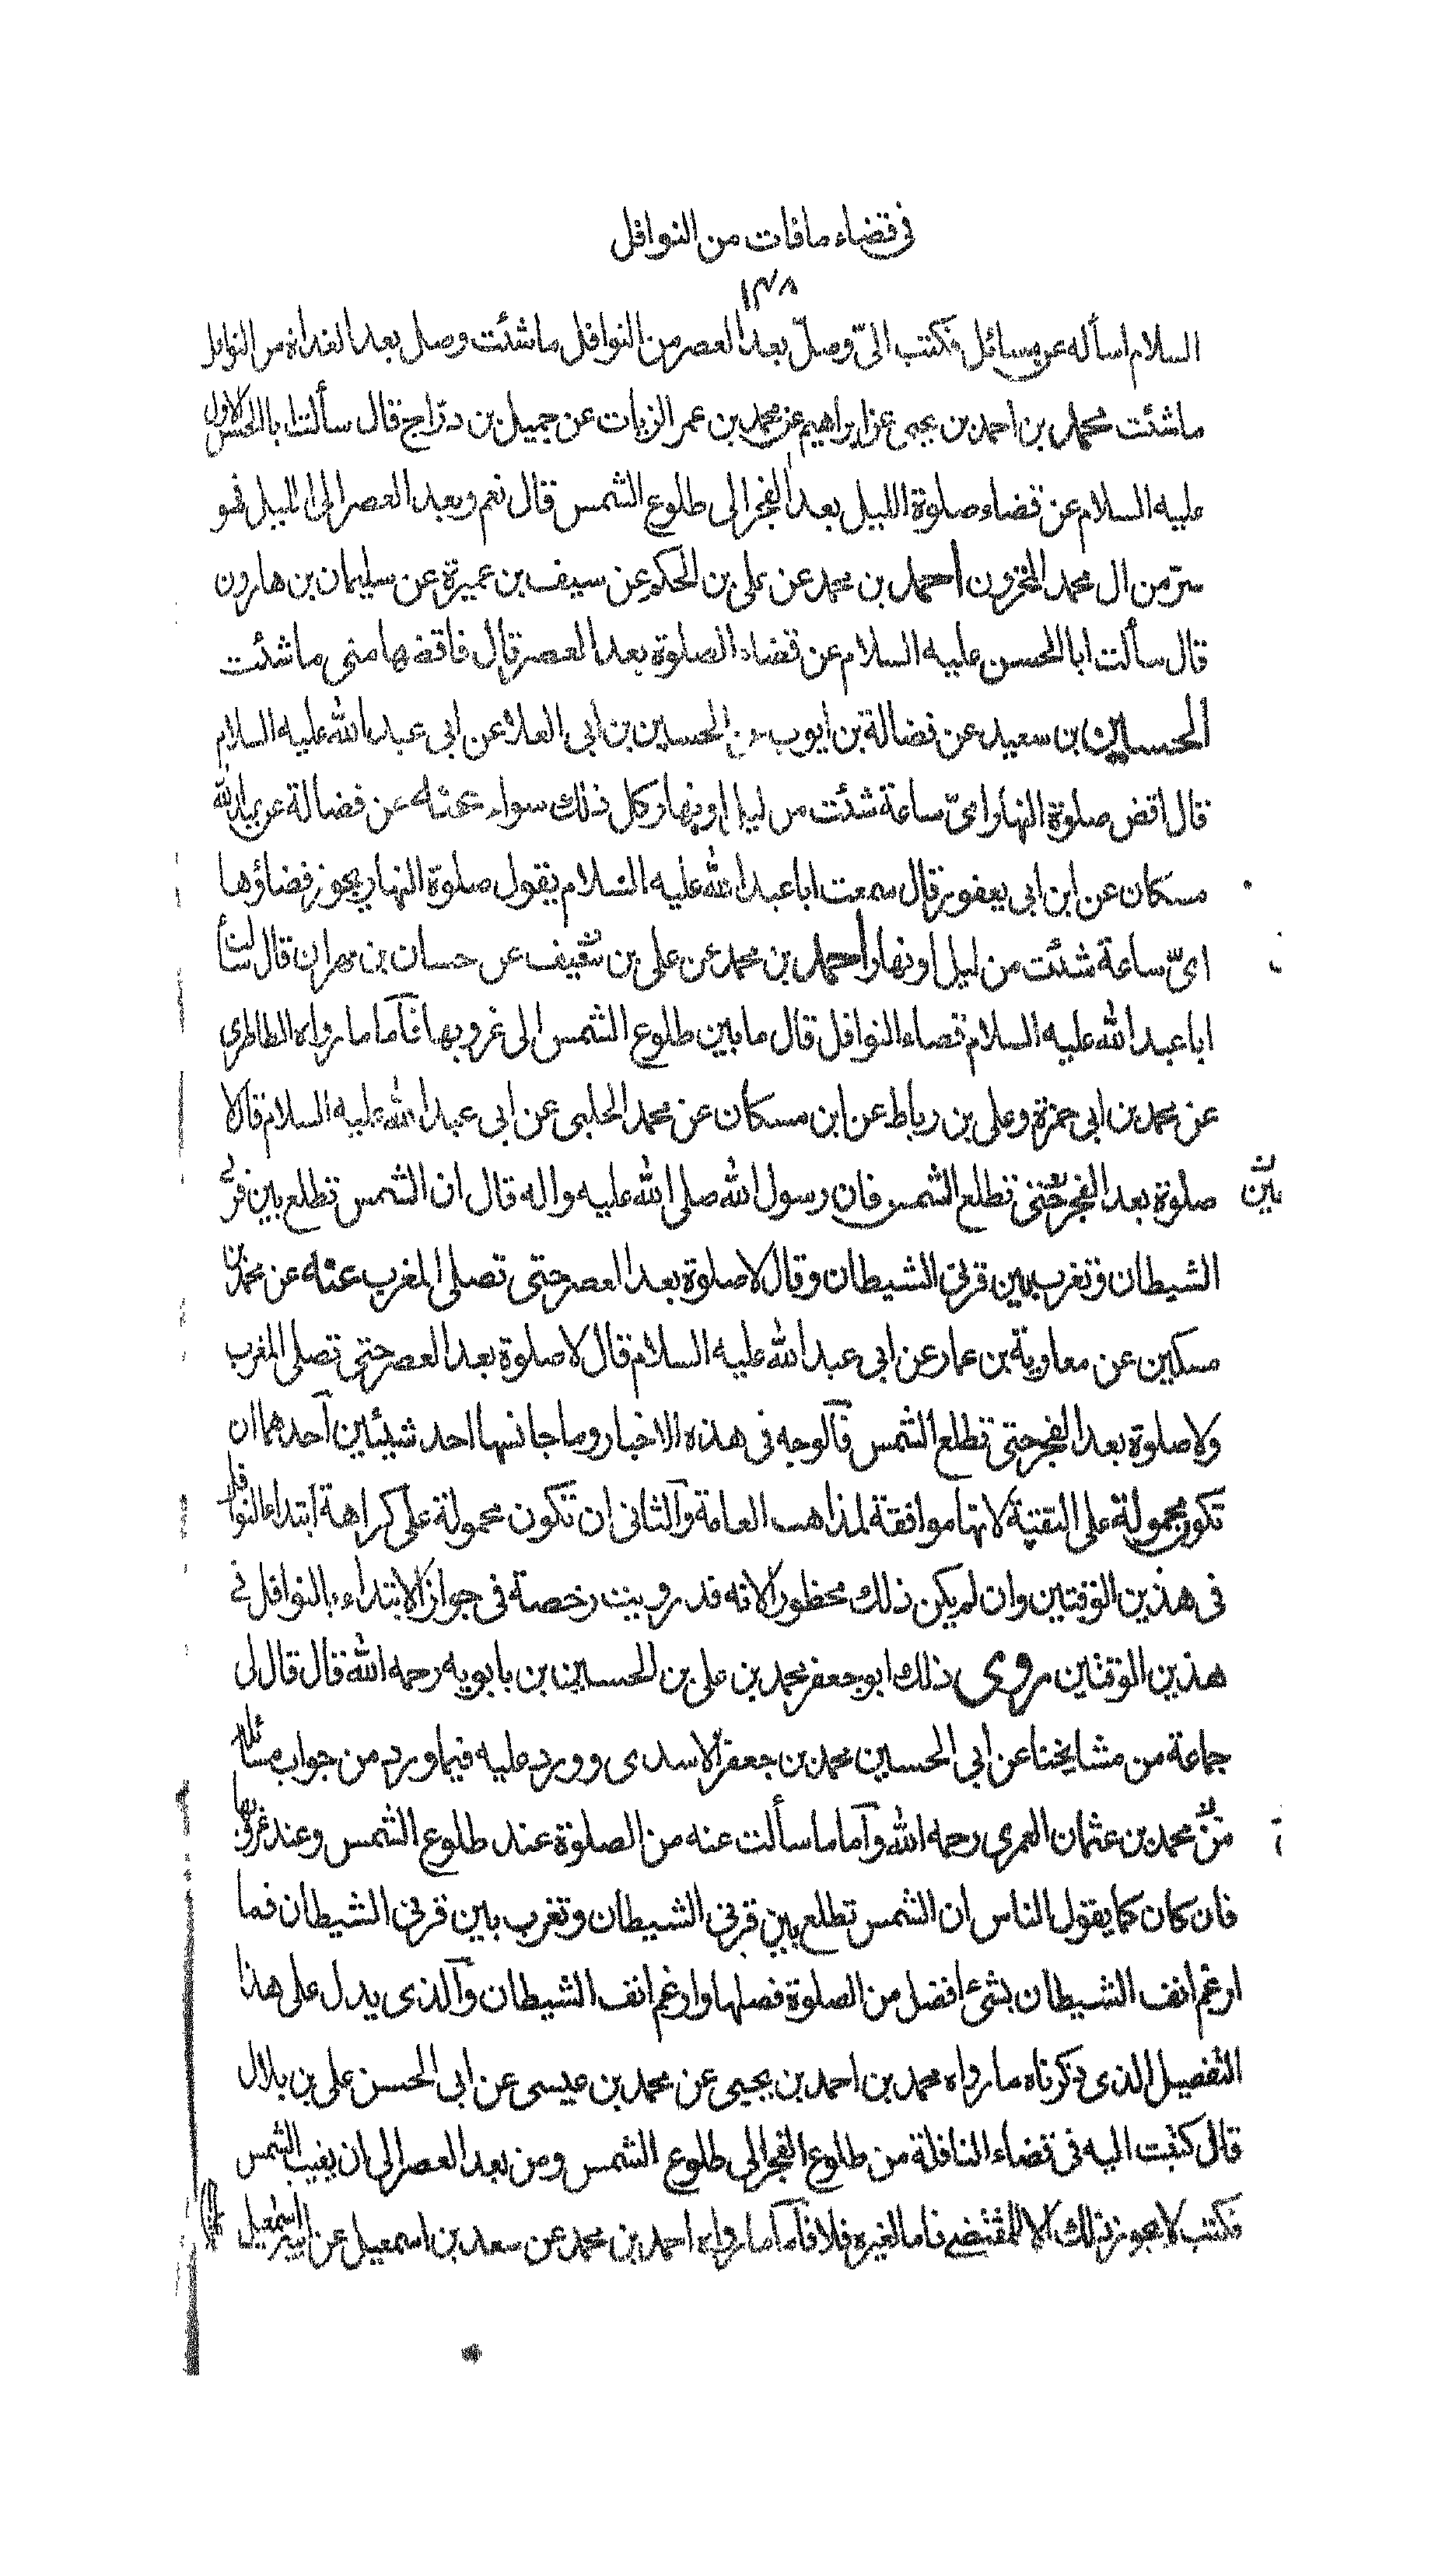 في قضاء ما فات من النوافل
١٣٨
السلام اسأله عن مسائل فكتب الىّ وصلّ بعد العصر من النوافل ما شئت وصل بعد الغداة من النوافل
ما شئت محمد بن احمد بن يحيى عن ابراهيم عن محمد بن عمر الزيات عن جميل بن درّاج قال سألت ابا الحسن الاول
عليه السلام عن قضاء صلوة الليل بعد الفجر الى طلوع الشمس قال نعم وبعد العصر الى الليل فهو
سرّ من ال محمد المخزون احمد بن محمد عن على بن الحكم عن سيف بن عميرة عن سليمان بن هارون
قال سألت ابا الحسن عليه السلام عن قضاء الصلوة بعد العصر قال فاقضها متى ما شئت
الحسين بن سعيد عن فضالة بن ايوب عن الحسين بن ابى العلا عن ابى عبد الله عليه السلام
قال اقض صلوة النهار اىّ ساعة شئت من ليل او نهار كل ذلك سواء عنه عن فضالة عن عبد الله
مسكان عن ابن ابى يعفور قال سمعت ابا عبد الله عليه السلام يقول صلوة النهار يجوز قضاؤها
اىّ ساعة شئت من ليل او نهار احمد بن محمد عن على بن سيف عن حسان بن مهران قال سألت
ابا عبد الله عليه السلام قضاء النوافل قال ما بين طلوع الشمس الى غروبها فآما ما رواه الطاطرى
عن محمد بن ابى حمزة وعلى بن رباط عن ابن مسكان عن محمد الحلبى عن ابى عبد الله عليه السلام قال لا
صلوة بعد الفجر حتى تطلع الشمس فان رسول الله صلى الله عليه واله قال ان الشمس تطلع بين قرنى
الشيطان وتغرب بين قرنى الشيطان وقال لا صلوة بعد العصر حتى تصلى المغرب عنه عن محمد بن
مسكين عن معاوية بن عمار عن ابى عبد الله عليه السلام قال لا صلوة بعد العصر حتى تصلى المغرب
ولا صلوة بعد الفجر حتى تطلع الشمس فآلوجه فى هذه الاخبار وما جانسها احد شيئين آحدهما ان
تكون محمولة على التقيّة لانها موافقة لمذاهب العامة وآلثانى ان تكون محمولة على كراهة ابتداء النوافل
فى هذين الوقتين وان لم يكن ذلك محظورا لانه قد رويت رخصة فى جواز الابتداء بالنوافل فى
هذين الوقتين روى ذلك ابو جعفر محمد بن على بن الحسين بن بابويه رحمه الله قال قال لى
جماعة من مشايخنا عن ابى الحسين محمد بن جعفر الاسدى وورد عليه فيما ورد من جواب مسائله
من محمد بن عثمان العمرى رحمه الله وآما ما سألت عنه من الصلوة عند طلوع الشمس وعند غروبها
فان كان كما يقول الناس ان الشمس تطلع بين قرنى الشيطان وتغرب بين قرنى الشيطان فما
ارغم انف الشيطان بشئ افضل من الصلوة فصلها وارغم انف الشيطان وآلذى يدل على هذا
التفصيل الذى ذكرناه ما رواه محمد بن احمد بن يحيى عن محمد بن عيسى عن ابى الحسن على بن بلال
قال كتبت اليه فى قضاء النافلة من طلوع الفجر الى طلوع الشمس ومن بعد العصر الى ان يغيب الشمس
فكتب لا يجوز ذلك الا للمقتضى فاما لغيره فلا فآما ما رواه احمد بن محمد عن سعد بن اسمعيل عن ابيه اسمعيل